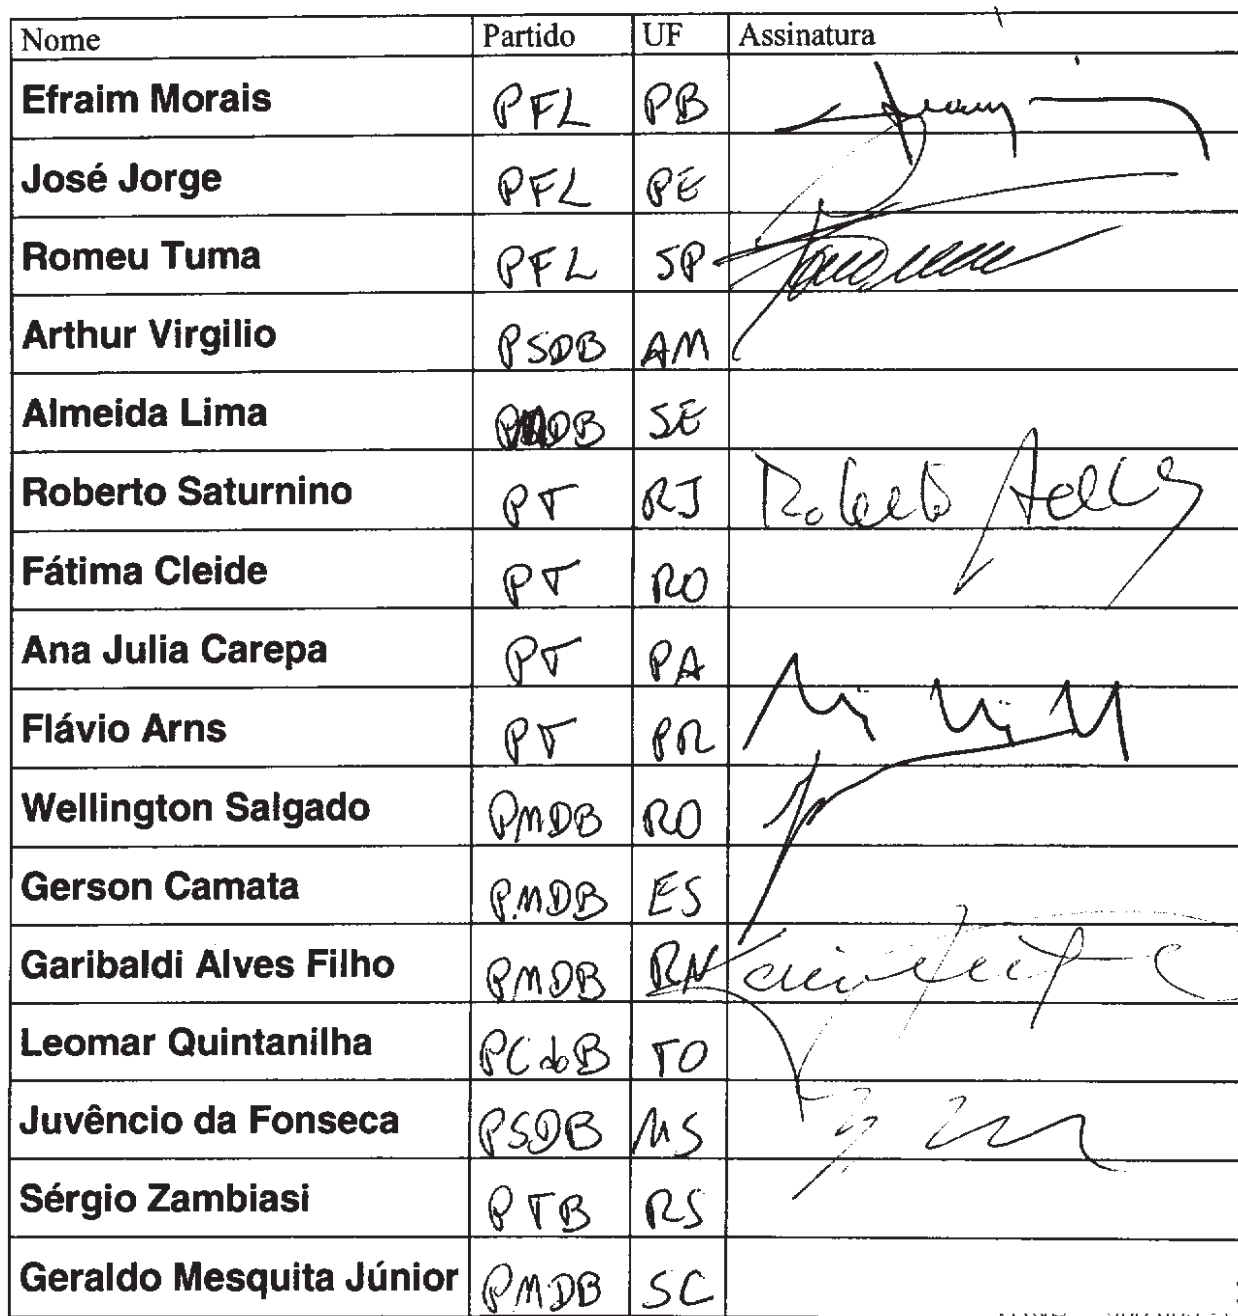 Nome Partido UF Assinatura
Efraim Morais PFL PB
José Jorge PFL PE
Romeu Tuma PFL SP
Arthur Virgilio PSDB AM
Almeida Lima PMDB SE
Roberto Saturnino PT RJ Roberto
Fátima Cleide PT RO
Ana Julia Carepa PT PA
Flávio Arns PT PR
Wellington Salgado PMDB RO
Gerson Camata PMDB ES
Garibaldi Alves Filho PMDB RN
Leomar Quintanilha PCdoB TO
Juvêncio da Fonseca PSDB MS
Sérgio Zambiasi PTB RS
Geraldo Mesquita Júnior PMDB SC